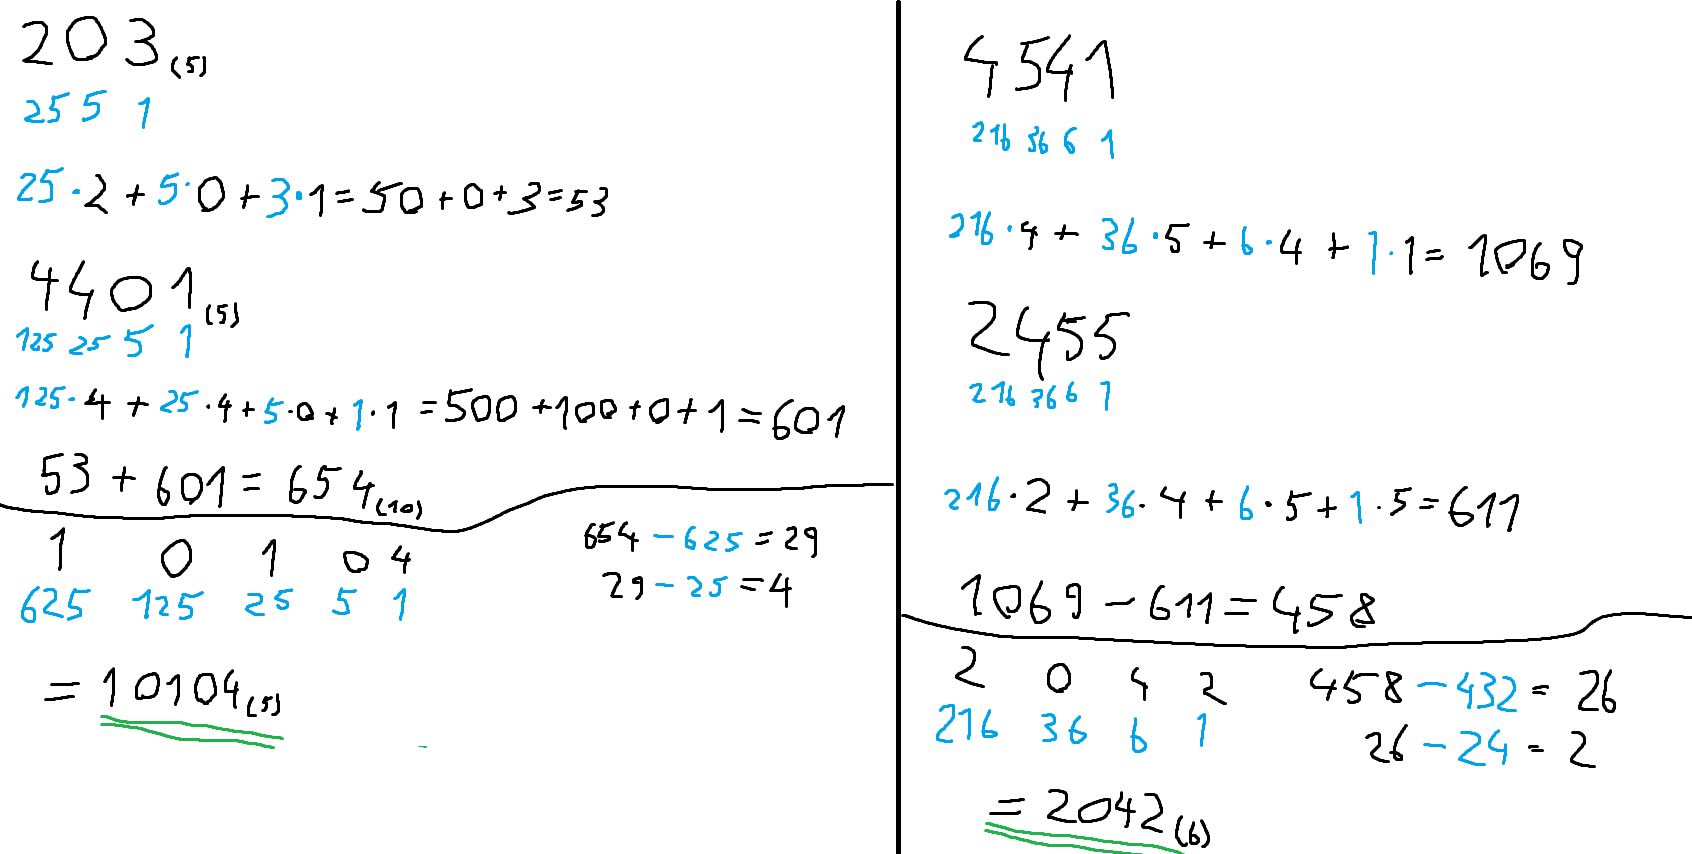 203(5)
25 5 1
25·2 + 5·0 + 3·1 = 50 + 0 + 3 = 53
4401(5)
125 25 5 1
125·4 + 25·4 + 5·0 + 1·1 = 500 + 100 + 0 + 1 = 601
53 + 601 = 654(10)
1 0 1 0 4
625 125 25 5 1
654 - 625 = 29
29 - 25 = 4
= 10104(5)
4541
216 36 6 1
216·4 + 36·5 + 6·4 + 1·1 = 1069
2455
216 36 6 1
216·2 + 36·4 + 6·5 + 1·5 = 611
1069 - 611 = 458
2 0 4 2
216 36 6 1
458 - 432 = 26
26 - 24 = 2
= 2042(6)